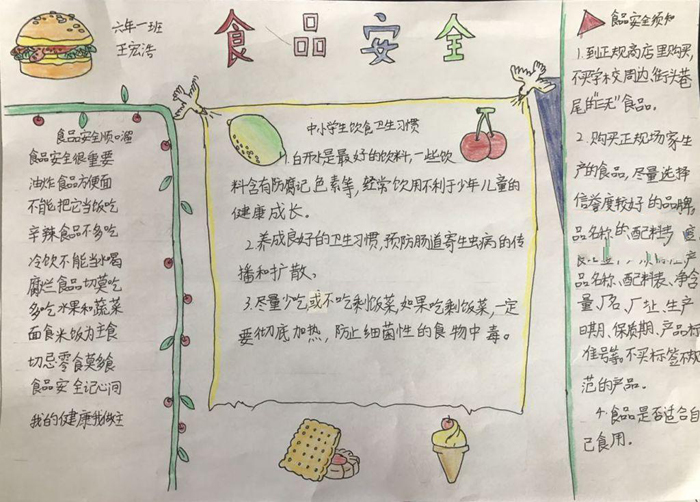 六年一班
王宏浩
食品安全
食品安全顺口溜
食品安全很重要
油炸食品方便面
不能把它当饭吃
辛辣食品不多吃
冷饮不能当水喝
腐烂食品切莫吃
多吃水果和蔬菜
面食米饭为主食
切忌零食莫贪食
食品安全记心间
我的健康我做主
中小学生饮食卫生习惯
1.白开水是最好的饮料,一些饮
料含有防腐记色素等,经常饮用不利于少年儿童的
健康成长。
2.养成良好的卫生习惯,预防肠道寄生虫病的传
播和扩散、
3.尽量少吃或不吃剩饭菜,如果吃剩饭菜,一定
要彻底加热,防止细菌性的食物中毒。
食品安全须知
1.到正规商店里购买,
不买学校周边、街头巷
尾的"三无"食品。
2.购买正规场家生
产的食品,尽量选择
信誉度较好的品牌
品名称、配料表、净含
量、厂名、厂址、生产
日期、保质期、产品标
准号等。不买标签不规
范的产品。
4.食品是否适合自
己食用。